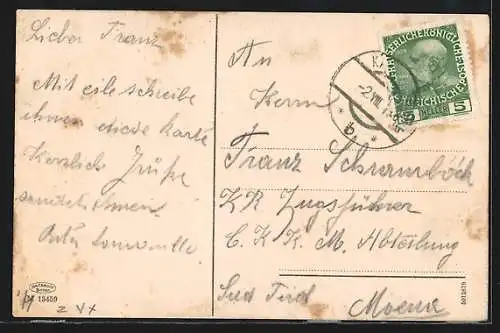 Lieber Franz
Mit eile schreibe
ihnen diese karte
Herzlich Grüße
sendet ihnen
An
Herrn
Franz Schrumböck
KK Zugsführer
C. K. K. M. Abteilung
Süd Tirol
KAISERLICHE KÖNIGLICHE
ÖSTERREICHISCHE POST
5 HELLER 5
b
13459